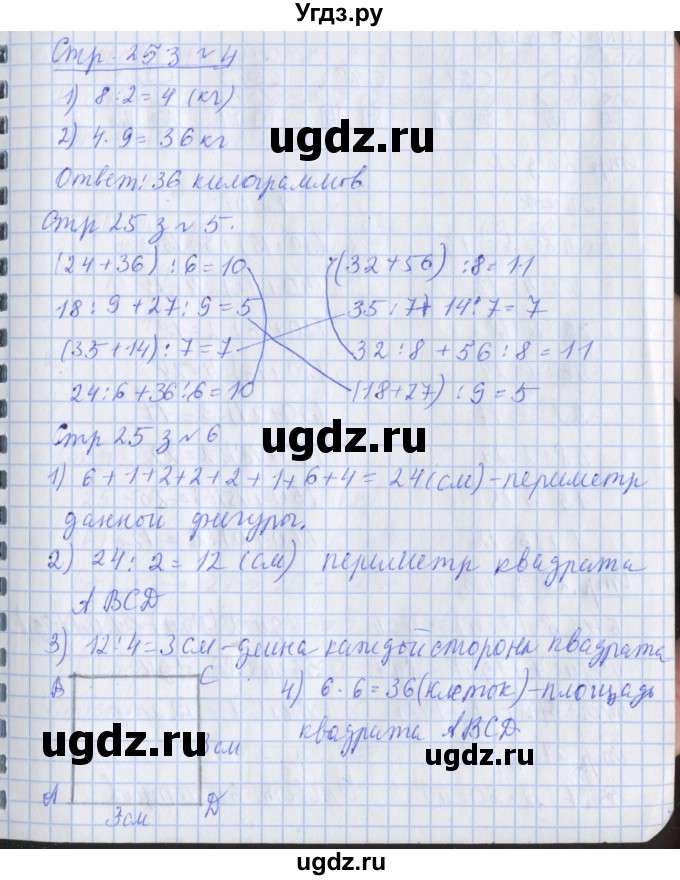 Угдз.ру
Стр. 25 з № 4
1) 8 : 2 = 4 (кг)
2) 4 · 9 = 36 кг
ugdz.ru
Ответ: 36 килограммов
Стр 25 з № 5.
(24+36) : 6 = 10
(32+56) : 8 = 11
ugdz.ru
ugdz.ru
18 : 9 + 27 : 9 = 5
35 : 7 + 14 : 7 = 7
(35+14) : 7 = 7
32 : 8 + 56 : 8 = 11
24 : 6 + 36 : 6 = 10
(18+27) : 9 = 5
Стр 25 з № 6
ugdz.ru
1) 6+1+2+2+2+1+6+4 = 24 (см) - периметр
данной фигуры.
ugdz.ru
2) 24 : 2 = 12 (см) периметр квадрата
ABCD
3) 12 : 4 = 3 см - длина каждой стороны квадрата
B
C
4) 6 · 6 = 36 (клеток) - площадь
квадрата ABCD
ugdz.ru
3 см
ugdz.ru
A
D
3 см
ugdz.ru